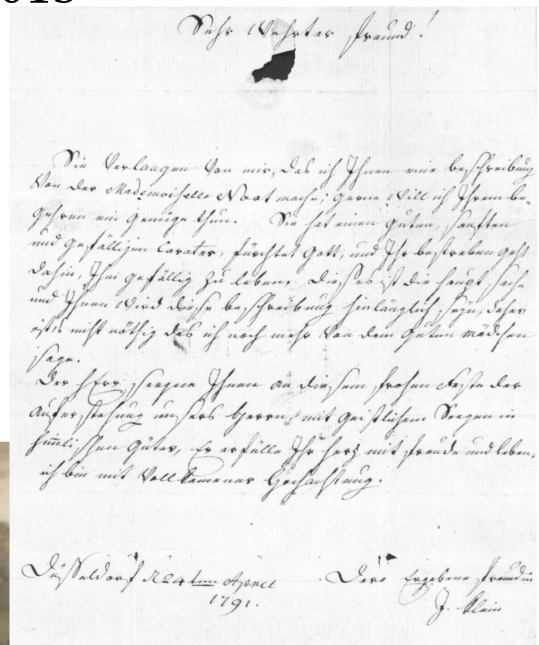 Sehr Wehrter Freund!
Sie Verlangen Von mir, das ich Ihnen eine beschreibung
Von der Mademoiselle Noot mache; gerne Will ich Ihrem be-
gehren ein genüge thun. Sie hat einen guten, sanften
und gefälligen Carater, fürchtet Gott, und Ihr bestreben geht
dahin, Ihm gefällig zu leben. Dieses ist die haupt sache
und Ihnen Wird diese beschreibung hinlänglich seyn, daher
ists nicht nöthig das ich noch mehr Von dem guten mädchen
sage.
Der Herr seegne Ihnen an diesem frohen Feste der
Auferstehung unsers Herrn, mit geistlichem Seegen in
himlischen Güter, Er erfülle Ihr herz mit freude und leben.
ich bin mit Vollkomener Hochachtung.
Düsseldorf 24ten April
1791.
Dero Ergebene freundin
J. Klein